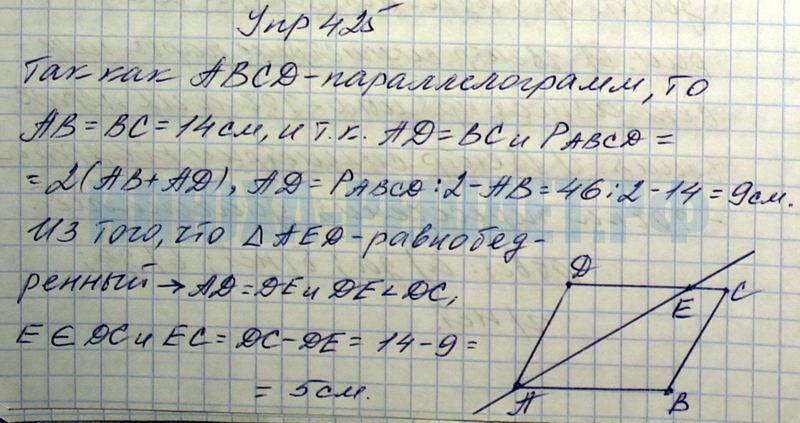 Упр 425
Так как ABCD-параллелограмм, то
AB = BC = 14 см, и т.к. AD = BC и PABCD =
= 2(AB + AD), AD = PABCD : 2 - AB = 46 : 2 - 14 = 9 см.
Из того, что △ AED - равнобед-
ренный → AD = DE и DE < DC,
E ∈ DC и EC = DC - DE = 14 - 9 =
= 5 см.
D
E C
A B